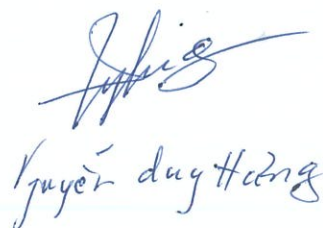 Nguyễn duy Hưng